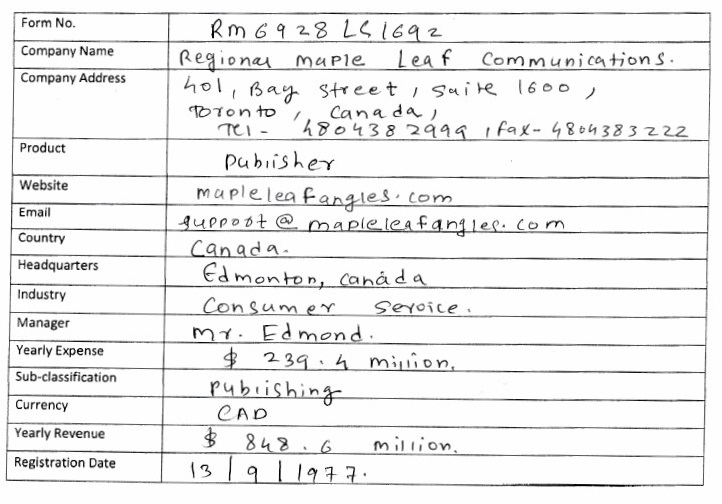 Form No. RM6928LS1692
Company Name Regional maple Leaf Communications.
Company Address 401, Bay Street, Suite 1600,
Toronto, Canada,
Tel - 4804382999, fax- 4804383222
Product Publisher
Website mapleleafangles.com
Email support@mapleleafangles.com
Country Canada.
Headquarters Edmonton, Canada
Industry Consumer Service.
Manager Mr. Edmond.
Yearly Expense $ 239.4 million.
Sub-classification Publishing
Currency CAD
Yearly Revenue $ 848.6 million.
Registration Date 13/9/1977.